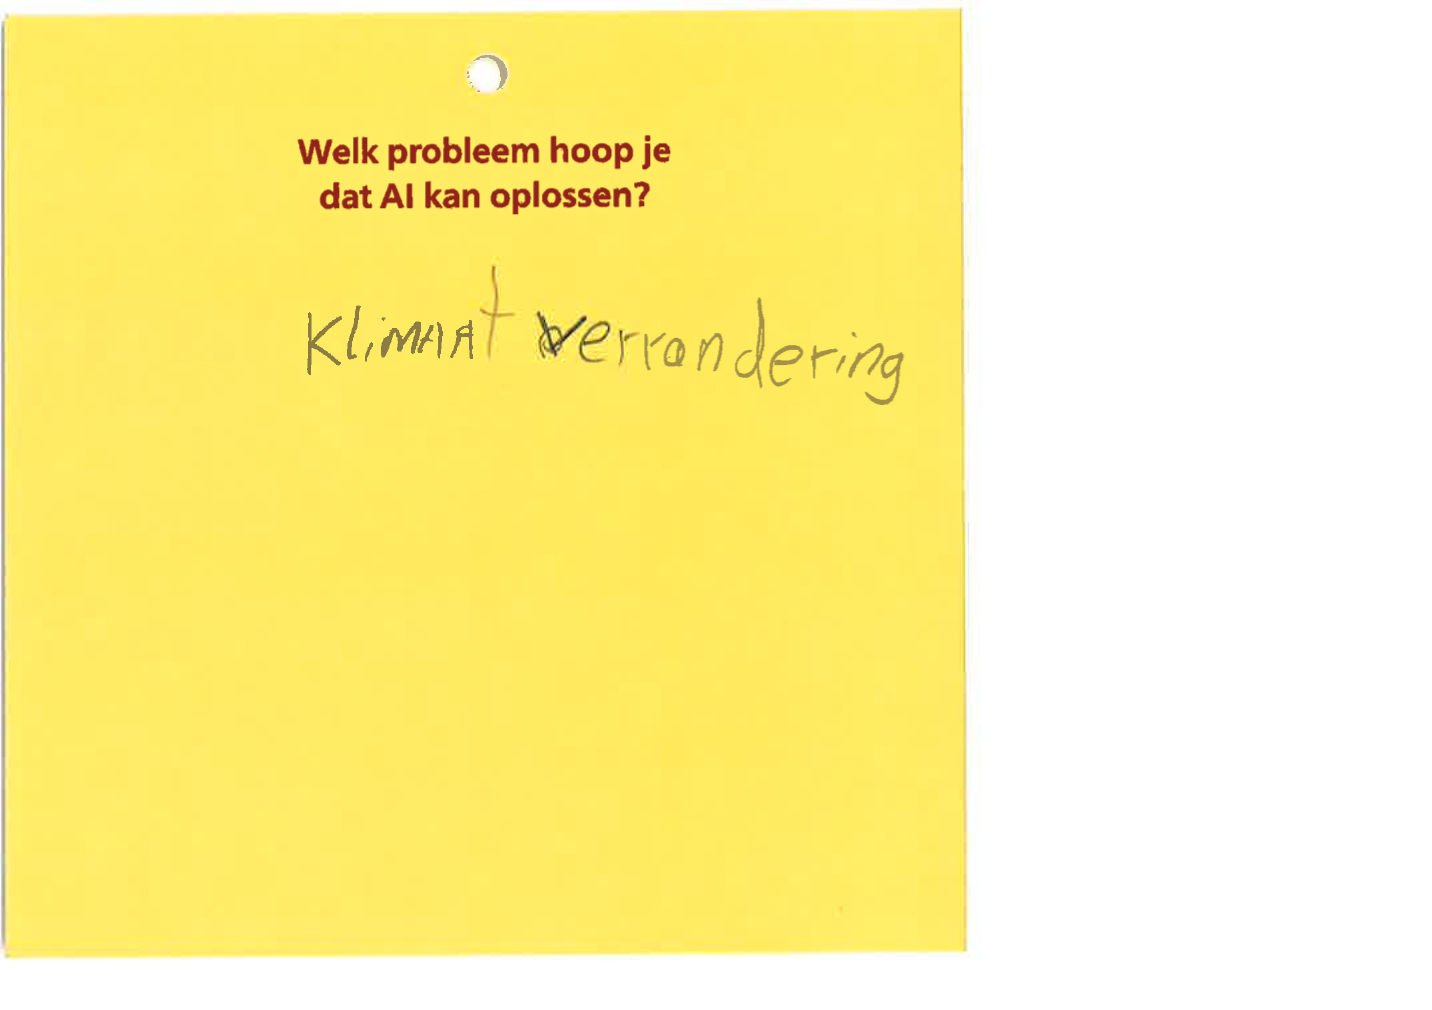 Welk probleem hoop je
dat AI kan oplossen?
Klimaat verrandering